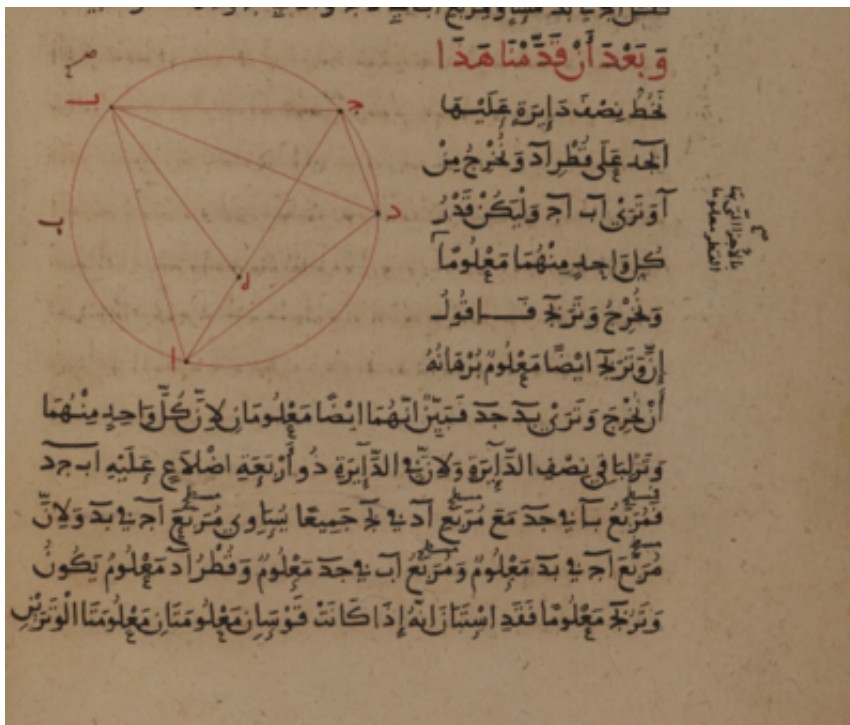 وَبَعْدَ أَنْ قَدَّمْنَا هَذَا
نَخُطُّ نِصْفَ دَايِرَةٍ عَلَيْهَا
ابجد عَلَى قُطْرِ اد وَنُخْرِجُ مِنْ
ا وَتَرَيْ اب اج وَلْيَكُنْ قَدْرُ
كُلِّ وَاحِدٍ مِنْهُمَا مَعْلُومًا
وَنُخْرِجُ وَتَرَ بج فَــاقُولُ
إِنَّ وَتَرَ بج ايْضًا مَعْلُومٌ بُرْهَانُهُ
أَنْ نُخْرِجَ وَتَرَيْ بد جد فَبَيِّنٌ انَّهُمَا ايْضًا مَعْلُومَانِ لِانَّ كُلَّ وَاحِدٍ مِنْهُمَا
وَتَرٌ لِبَاقِي نِصْفِ الدَّايِرَةِ وَلِانَّ في الدَّايِرَةِ ذُو أَرْبَعَةِ اضْلَاعٍ عَلَيْهِ اب جد
فَمُرَبَّعُ با في جد مَعَ مُرَبَّعِ اد في بج جَمِيعًا يُسَاوِي مُرَبَّعَ اج في بد وَلِانَّ
مُرَبَّعَ اج في بد مَعْلُومٌ وَمُرَبَّعُ اب في جد مَعْلُومٌ وَقُطْرُ اد مَعْلُومٌ يَكُونُ
وَتَرُ بج مَعْلُومًا فَقَدِ اسْتَبَانَ انَّهُ إِذَا كَانَتْ قَوْسَانِ مَعْلُومَتَانِ مَعْلُومَتَا الْوَتَرَيْنِ
بالاجزا التي بها
القطر معلوما
صح
ب
ج
د
ه
ا